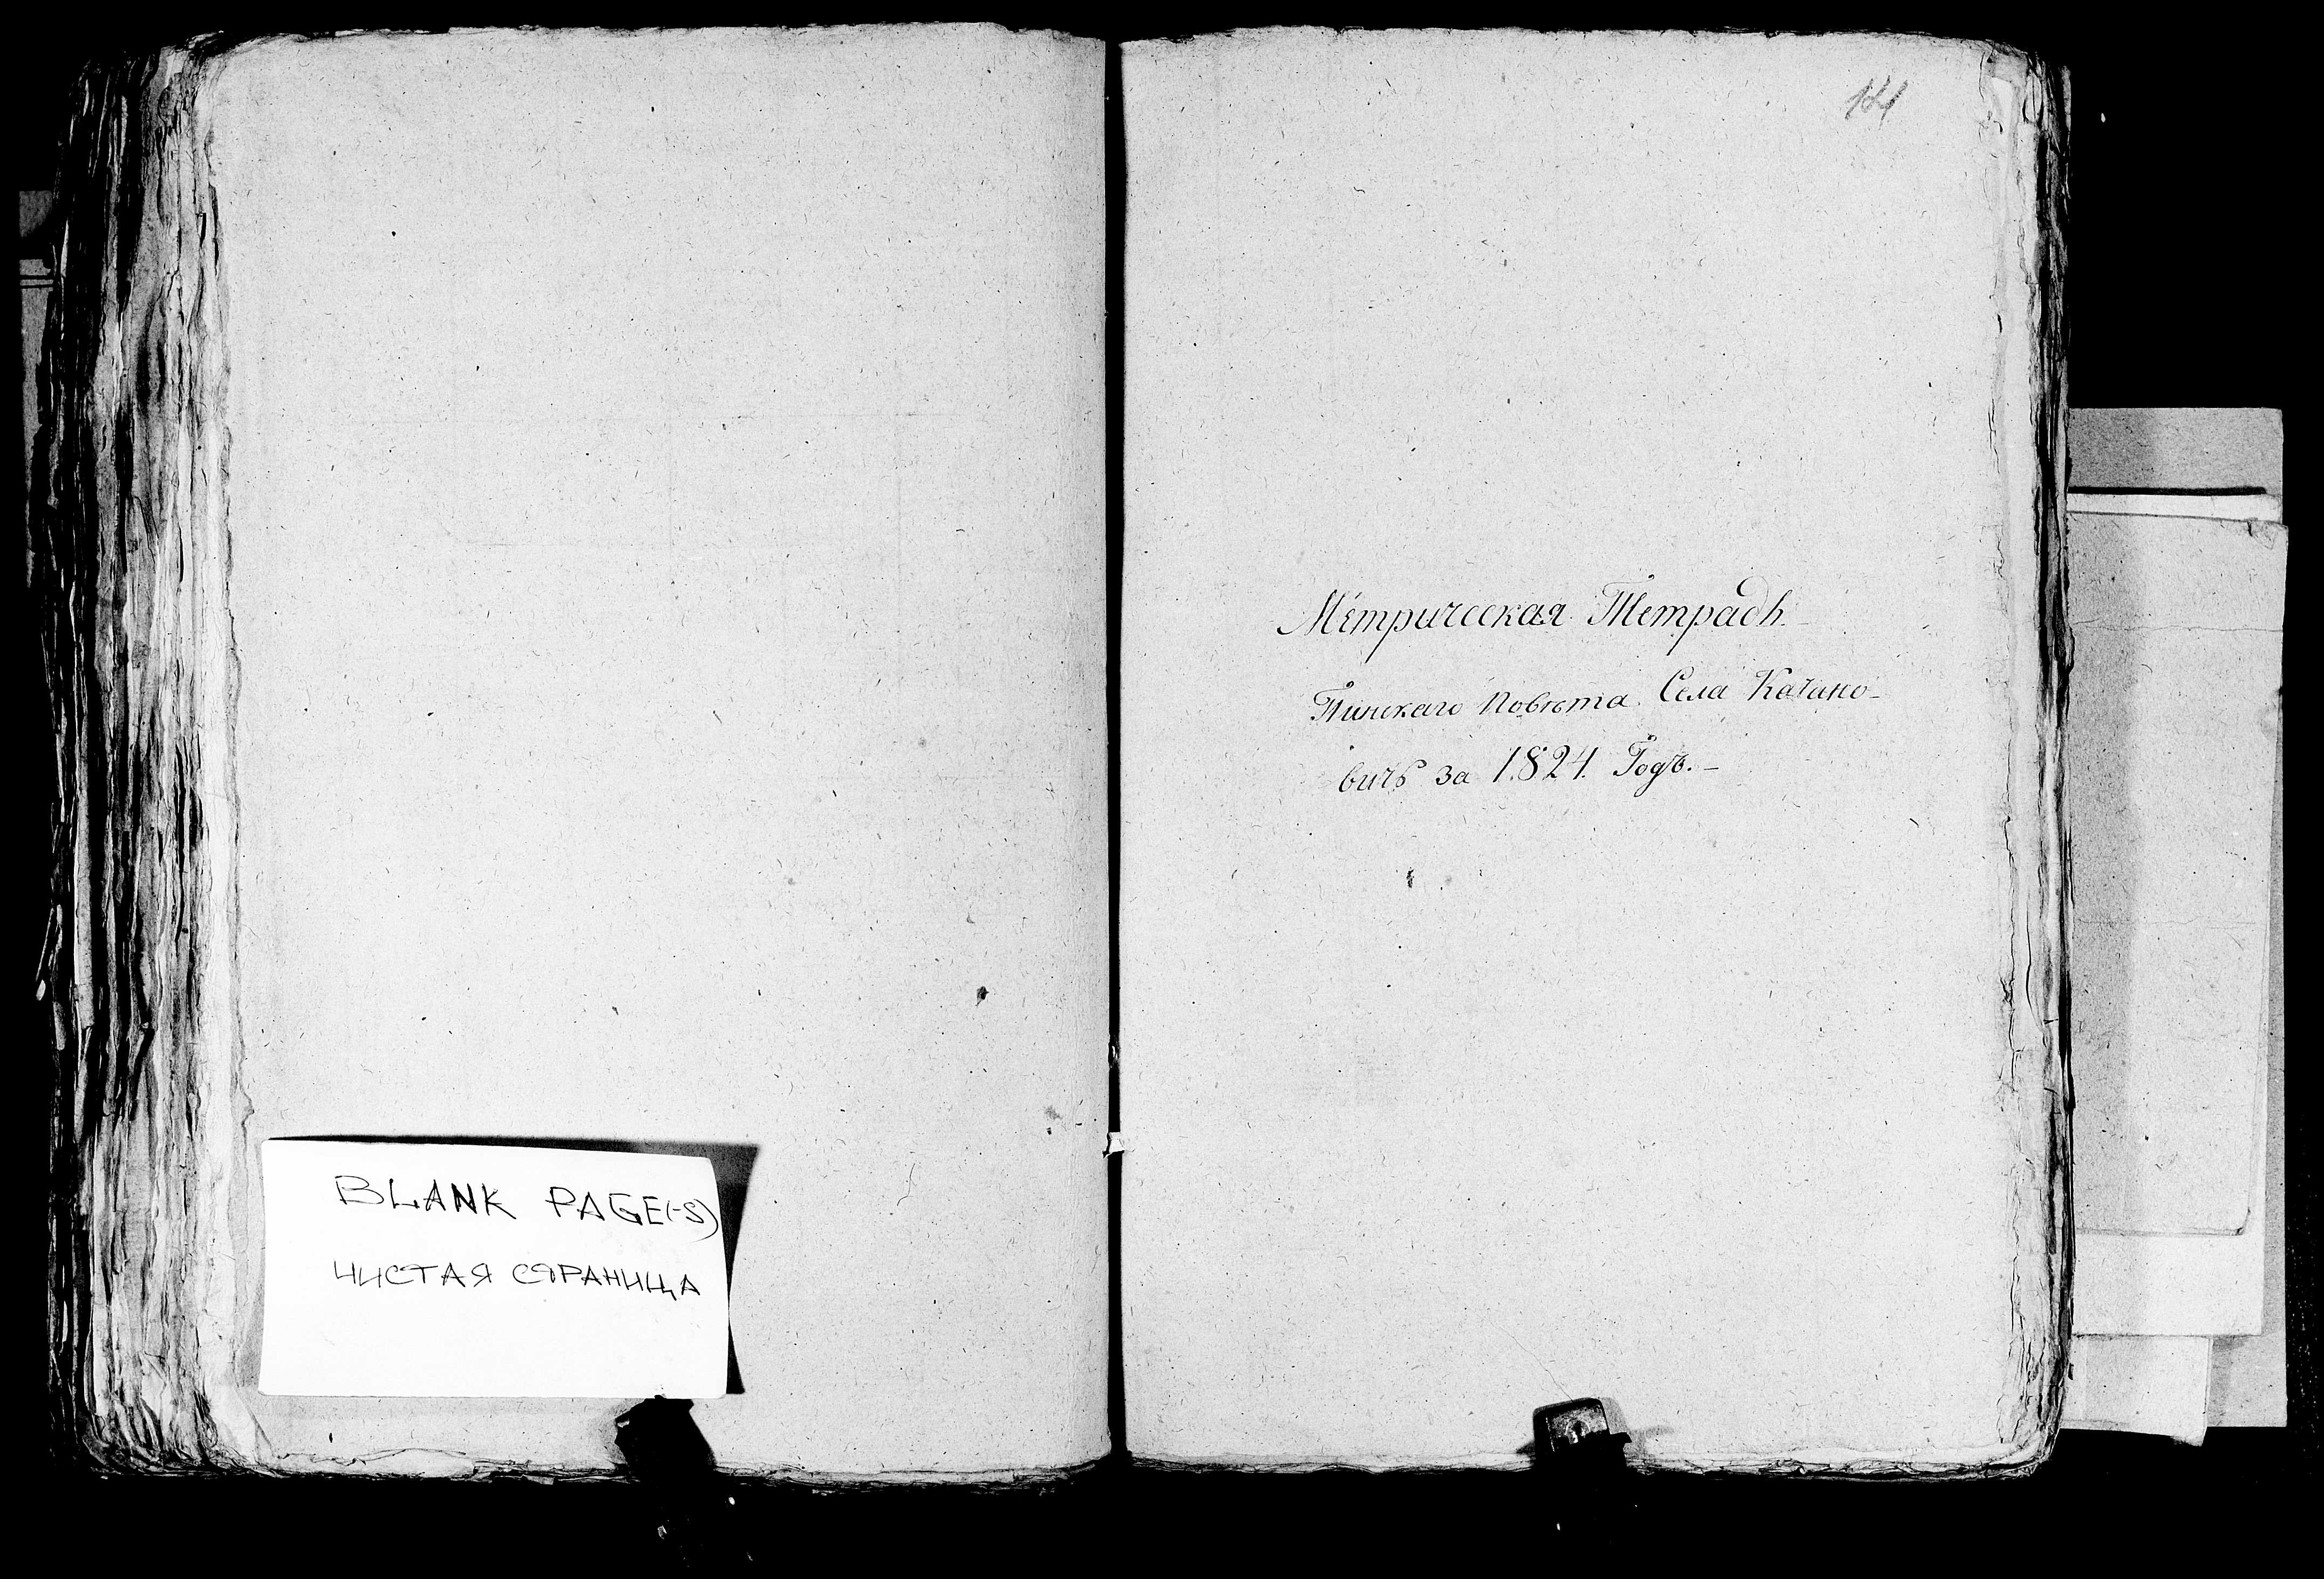 BLANK PAGE(-S)
ЧИСТАЯ СТРАНИЦА
Метрическая Тетрадь
Пинскаго Повѣта Села Качано-
вичь за 1824. Годъ.-